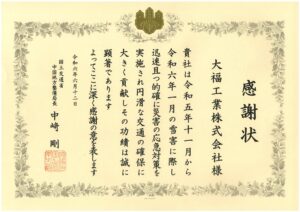 感謝状
大福工業株式会社様
貴社は令和五年十一月から
令和六年一月の雪害に際し
迅速且つ的確に災害の応急対策を
実施され円滑な交通の確保に
大きく貢献しその功績は誠に
顕著であります
よってここに深く感謝の意を表します
令和六年六月十二日
国土交通省
中国地方整備局長
中﨑 剛